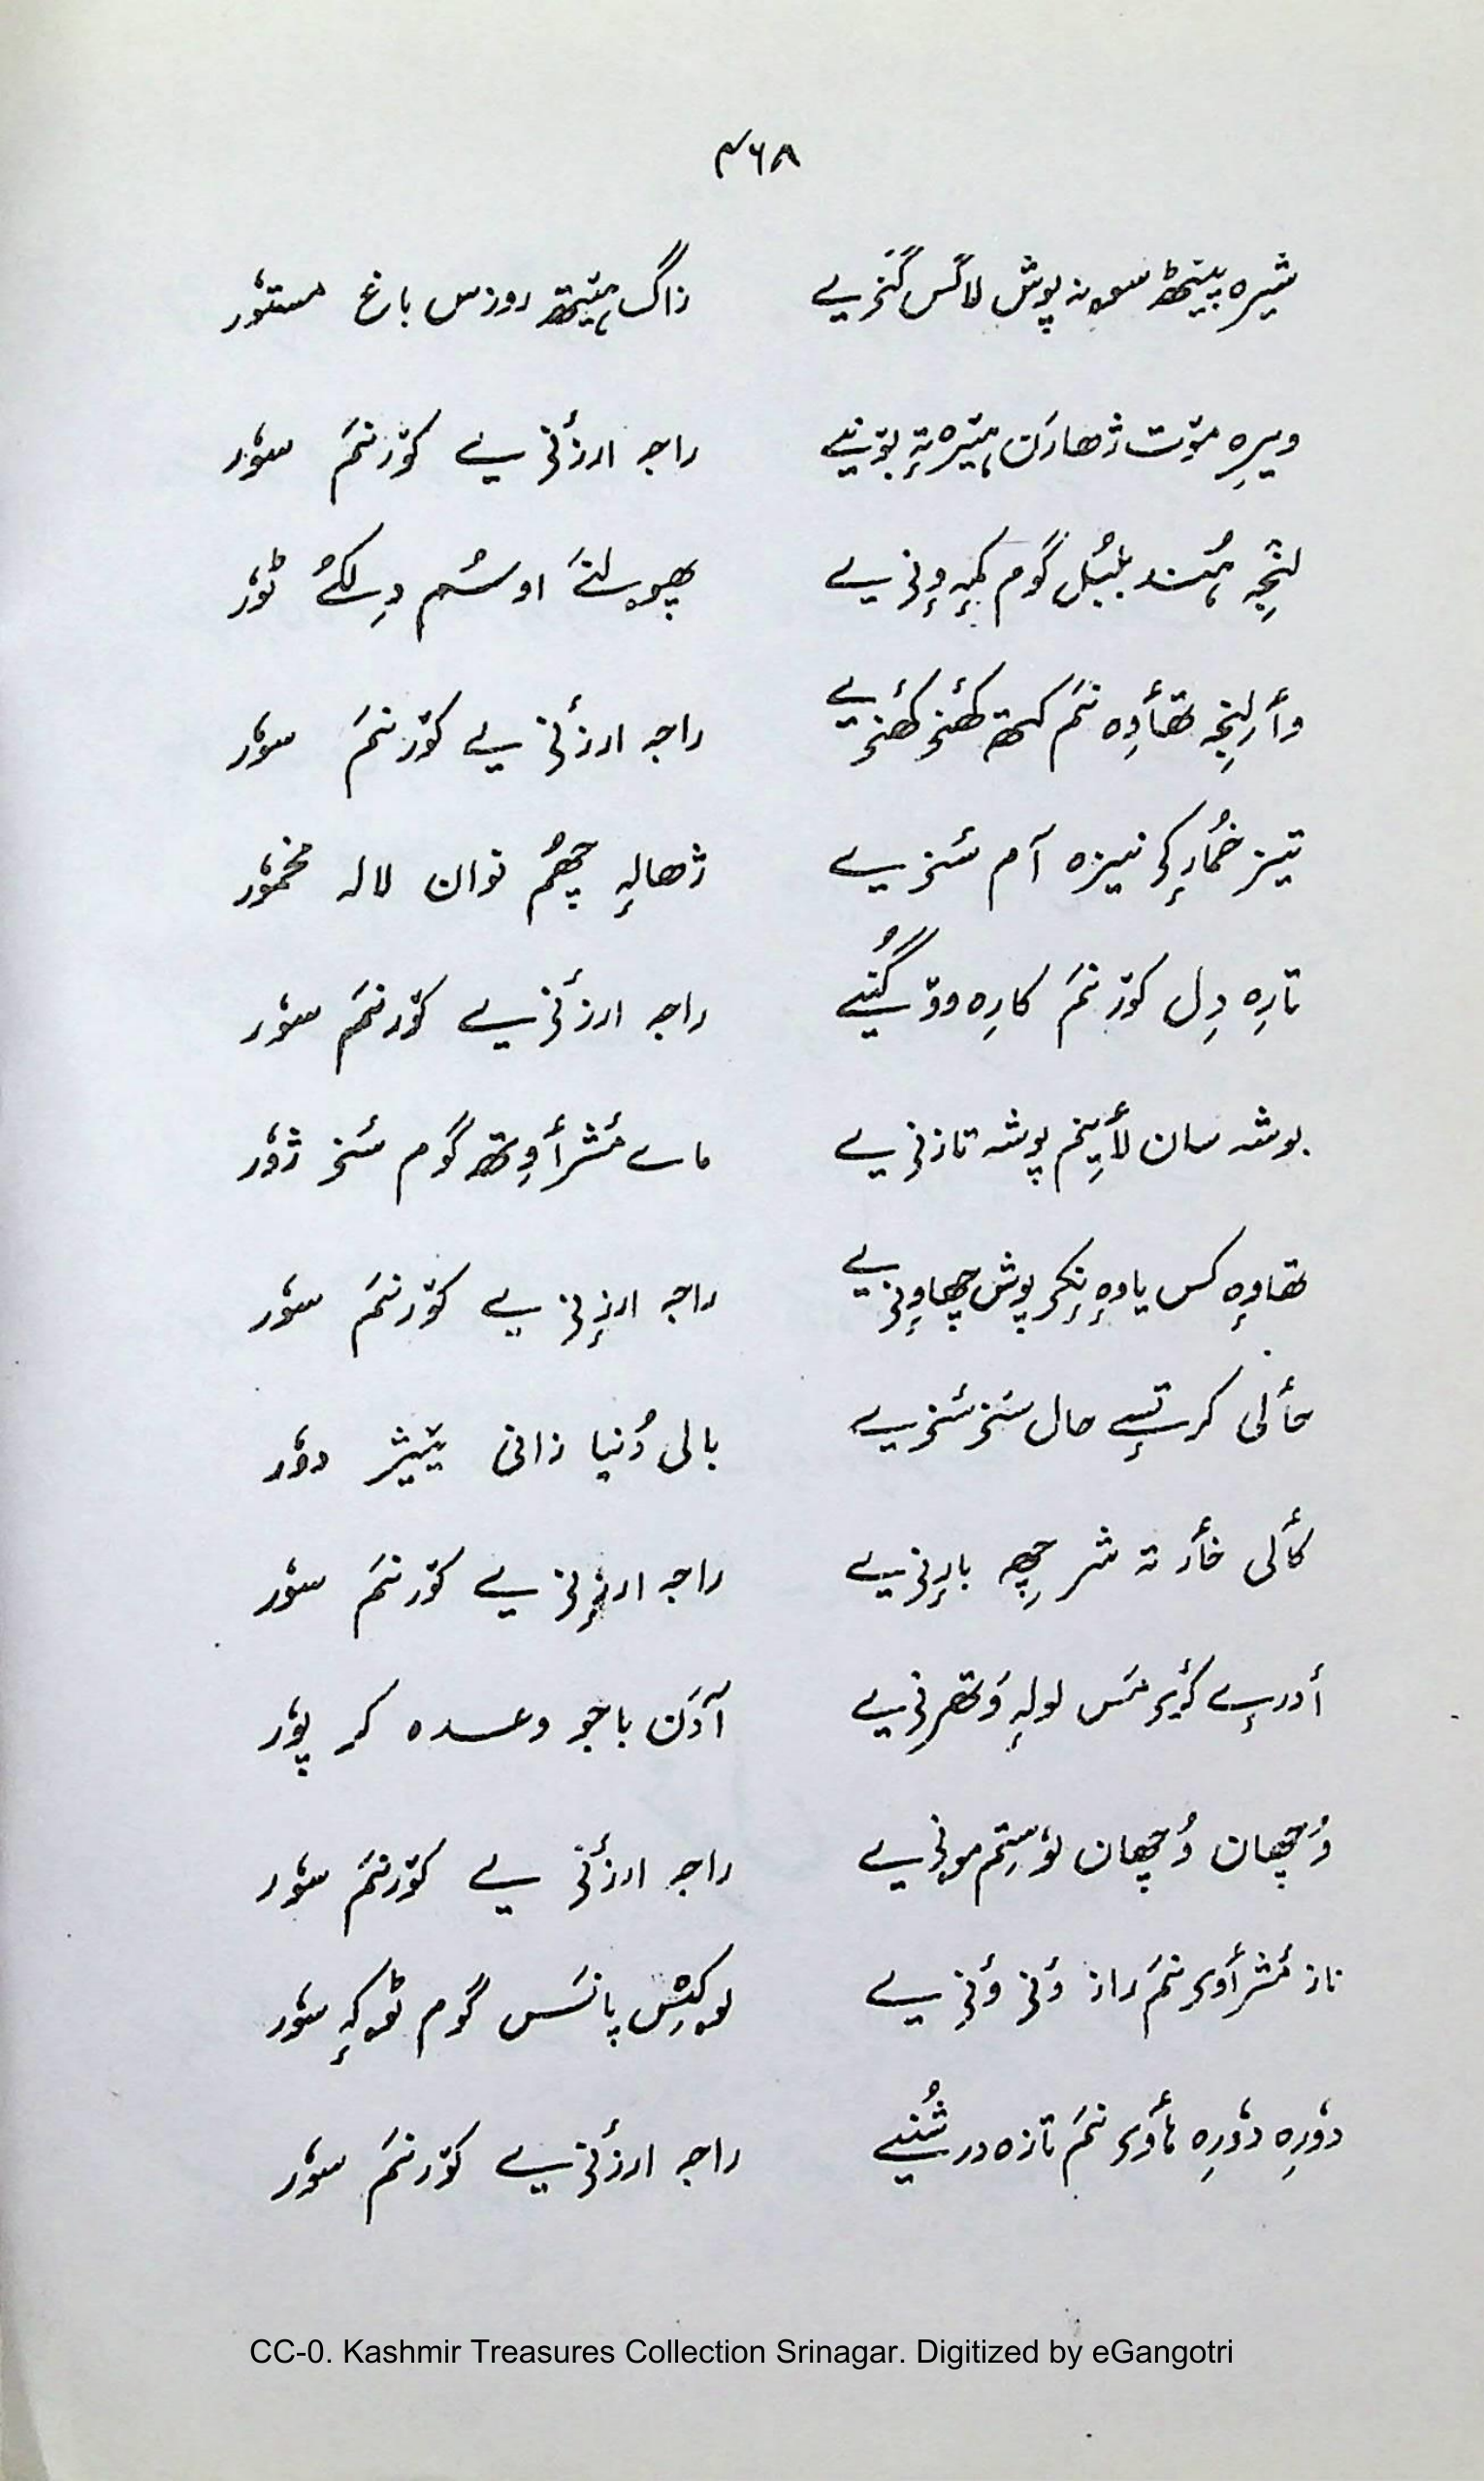 ۴۶۸
شیرہ پیٹھ سوٕنہ پوش لاگس گَنزیے زاگ ہیٚتھ روزس باغ مستوٗر
ویرِہ موٚت ژھارَن ہیٚرہ تہٕ بوٚنیے راجہ ارزٔنی یے کوٚرنَم سوٗر
لنٛجہِ ہُند بلبُل گوم کمہِ وٕنی یے پھوٕلنَے اوسُم دِلکُے ٹوٗر
وأرِلنجہ تھأوِہ نَم کتھ کھٔنی کھٔنی یے راجہ ارزٔنی یے کوٚرنَم سوٗر
تیز خُمارٕکی نیزہ آم سَنی یے ژھالہٕ چھُم نوان لالہ مخموٗر
تارِہ دِل کوٚرنَم کارِہ ووٚگُنیے راجہ ارزٔنی یے کوٚرنَم سوٗر
بوشہ سان لأیِنم پوشہ تازنی یے ماے مٔشرأوِتھ گوم سَنی ژوٗر
تھاوِہ کس یاوِہ نٕکی پوش چھاوٕنی یے راجہ ارزٕنی یے کوٚرنَم سوٗر
حألی کر تسٕے حال سَنی سَنی یے بالی دُنیا زانی یٔیژ دوٗر
کألی خأر تہ شر چھِ بارٕنی یے راجہ ارزٕنی یے کوٚرنَم سوٗر
أدرٕے کٔرے مَس لولہٕ وَتھرِنی یے آدَن باجو وعدہ کر پوٗر
وُچھان وُچھان لوٗسِتم مونی یے راجہ ارزٔنی یے کوٚرنَم سوٗر
ناز مٔشرأوی نَم راز وَنی وَنی یے لوکٹِس پانَس گوم ٹوکہٕ سوٗر
دوٗرِہ دوٗرِہ ہأوی نَم تازہ درشُنیے راجہ ارزٔنی یے کوٚرنَم سوٗر
CC-0. Kashmir Treasures Collection Srinagar. Digitized by eGangotri